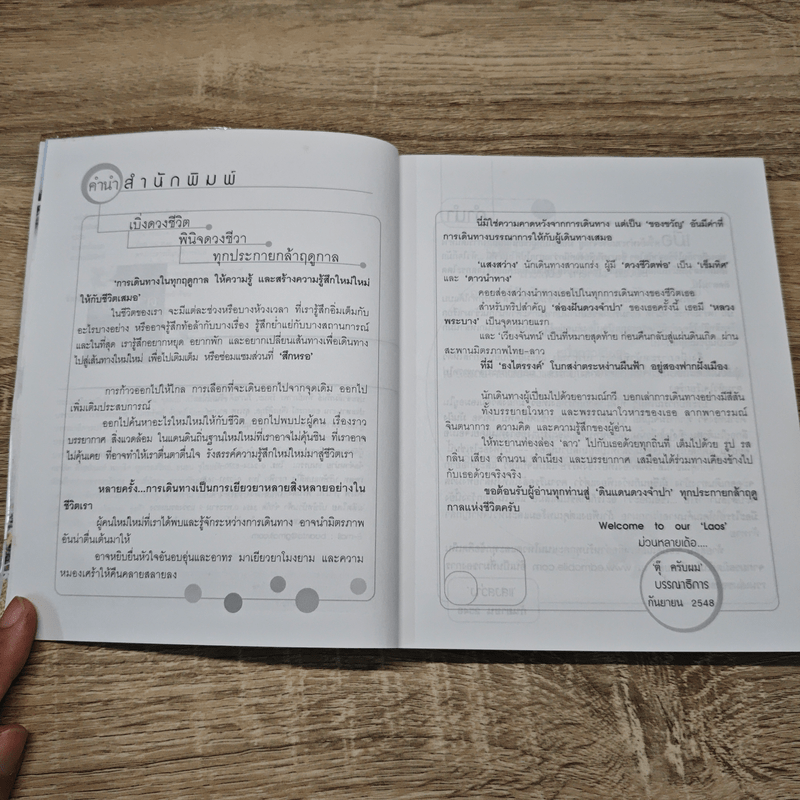 คำนำ สำนักพิมพ์
เบิ่งดวงชีวิต
พินิจดวงชีวา
ทุกประกายกล้าฤดูกาล
'การเดินทางในทุกฤดูกาล ให้ความรู้ และสร้างความรู้สึกใหม่ใหม่
ให้กับชีวิตเสมอ'
ในชีวิตของเรา จะมีแต่ละช่วงหรือบางห้วงเวลา ที่เรารู้สึกอิ่มเต็มกับ
อะไรบางอย่าง หรืออาจรู้สึกท้อล้ากับบางเรื่อง รู้สึกย่ำแย่กับบางสถานการณ์
และในที่สุด เรารู้สึกอยากหยุด อยากพัก และอยากเปลี่ยนเส้นทางเพื่อเดินทาง
ไปสู่เส้นทางใหม่ใหม่ เพื่อไปเติมเต็ม หรือซ่อมแซมส่วนที่ 'สึกหรอ'
การก้าวออกไปให้ไกล การเลือกที่จะเดินออกไปจากจุดเดิม ออกไป
เพิ่มเติมประสบการณ์
ออกไปค้นหาอะไรใหม่ใหม่ให้กับชีวิต ออกไปพบปะผู้คน เรื่องราว
บรรยากาศ สิ่งแวดล้อม ในแดนดินถิ่นฐานใหม่ใหม่ที่เราอาจไม่คุ้นชิน ที่เราอาจ
ไม่คุ้นเคย ที่อาจทำให้เราตื่นตาตื่นใจ รังสรรค์ความรู้สึกใหม่ใหม่มาสู่ชีวิตเรา
หลายครั้ง...การเดินทางเป็นการเยียวยาหลายสิ่งหลายอย่างใน
ชีวิตเรา
ผู้คนใหม่ใหม่ที่เราได้พบและรู้จักระหว่างการเดินทาง อาจนำมิตรภาพ
อันน่าตื่นเต้นมาให้
อาจหยิบยื่นหัวใจอันอบอุ่นและอาทร มาเยียวยาโมงยาม และความ
หมองเศร้าให้คืนคลายสลายลง
นี่มิใช่ความคาดหวังจากการเดินทาง แต่เป็น 'ของขวัญ' อันมีค่าที่
การเดินทางบรรณาการให้กับผู้เดินทางเสมอ
'แสงสว่าง' นักเดินทางสาวแกร่ง ผู้มี 'ดวงชีวิตพ่อ' เป็น 'เข็มทิศ'
และ 'ดาวนำทาง'
คอยส่องสว่างนำทางเธอไปในทุกการเดินทางของชีวิตเธอ
สำหรับทริปสำคัญ 'ล่องผืนดวงจำปา' ของเธอครั้งนี้ เธอมี 'หลวง
พระบาง' เป็นจุดหมายแรก
และ 'เวียงจันทน์' เป็นที่หมายสุดท้าย ก่อนคืนกลับสู่แผ่นดินเกิด ผ่าน
สะพานมิตรภาพไทย-ลาว
ที่มี 'ธงไตรรงค์' โบกสง่าตระหง่านผืนฟ้า อยู่สองฟากฝั่งเมือง
นักเดินทางผู้เปี่ยมไปด้วยอารมณ์กวี บอกเล่าการเดินทางอย่างมีสีสัน
ทั้งบรรยายโวหาร และพรรณนาโวหารของเธอ ลากพาอารมณ์
จินตนาการ ความคิด และความรู้สึกของผู้อ่าน
ให้ทะยานท่องล่อง 'ลาว' ไปกับเธอทุกถิ่นที่ เต็มไปด้วย รูป รส
กลิ่น เสียง สำนวน สำเนียง และบรรยากาศ เสมือนได้ร่วมทางเคียงข้างไป
กับเธอด้วยจริงจริง
ขอต้อนรับผู้อ่านทุกท่านสู่ 'ดินแดนดวงจำปา' ทุกประกายกล้าฤดู
กาลแห่งชีวิตครับ
Welcome to our 'Laos'
ม่วนหลายเด้อ....
'ตุ๊ ครับผม'
บรรณาธิการ
กันยายน 2548